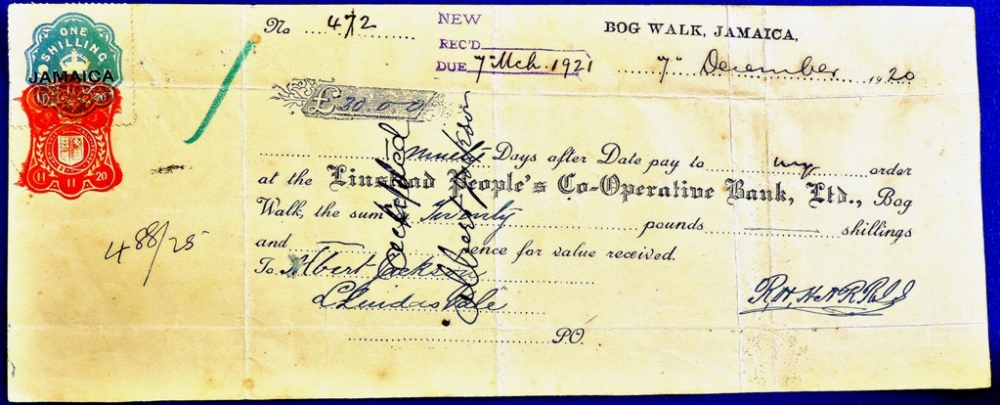 ONE
SHILLING
JAMAICA
11 11 20
No 472
NEW
REC'D
DUE 7 Mch. 1921
BOG WALK, JAMAICA,
7 December 1920
£20.0.0
Ninety Days after Date pay to my order
at the Linstead People's Co-Operative Bank, Ltd., Bog
Walk, the sum Twenty pounds shillings
and pence for value received.
To Albert Jackson
Lluidas Vale
P.O.
Accepted
Albert Jackson
488/25